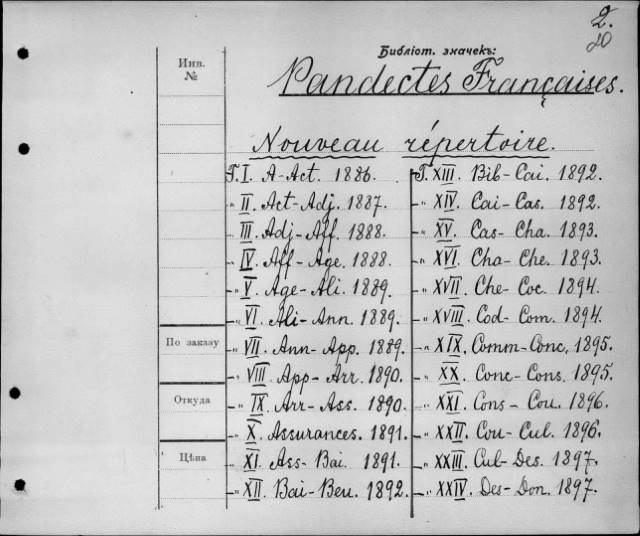 2.
Библіот. значекъ:
Инв.
№
Pandectes Françaises.
Nouveau répertoire.
T. I. A-Act. 1886.
„ II. Act-Adj. 1887.
„ III. Adj-Aff. 1888.
„ IV. Aff-Age. 1888.
„ V. Age-Ali. 1889.
„ VI. Ali-Ann. 1889.
„ VII. Ann-App. 1889.
„ VIII. App-Arr. 1890.
„ IX. Arr-Ass. 1890.
„ X. Assurances. 1891.
„ XI. Ass-Bai. 1891.
„ XII. Bai-Beu. 1892.
T. XIII. Bib-Cai. 1892.
„ XIV. Cai-Cas. 1892.
„ XV. Cas-Cha. 1893.
„ XVI. Cha-Che. 1893.
„ XVII. Che-Coc. 1894.
„ XVIII. Cod-Com. 1894.
„ XIX. Comm-Conc. 1895.
„ XX. Conc-Cons. 1895.
„ XXI. Cons-Cou. 1896.
„ XXII. Cou-Cul. 1896.
„ XXIII. Cul-Des. 1897.
„ XXIV. Des-Don. 1897.
По заказу
Откуда
Цѣна